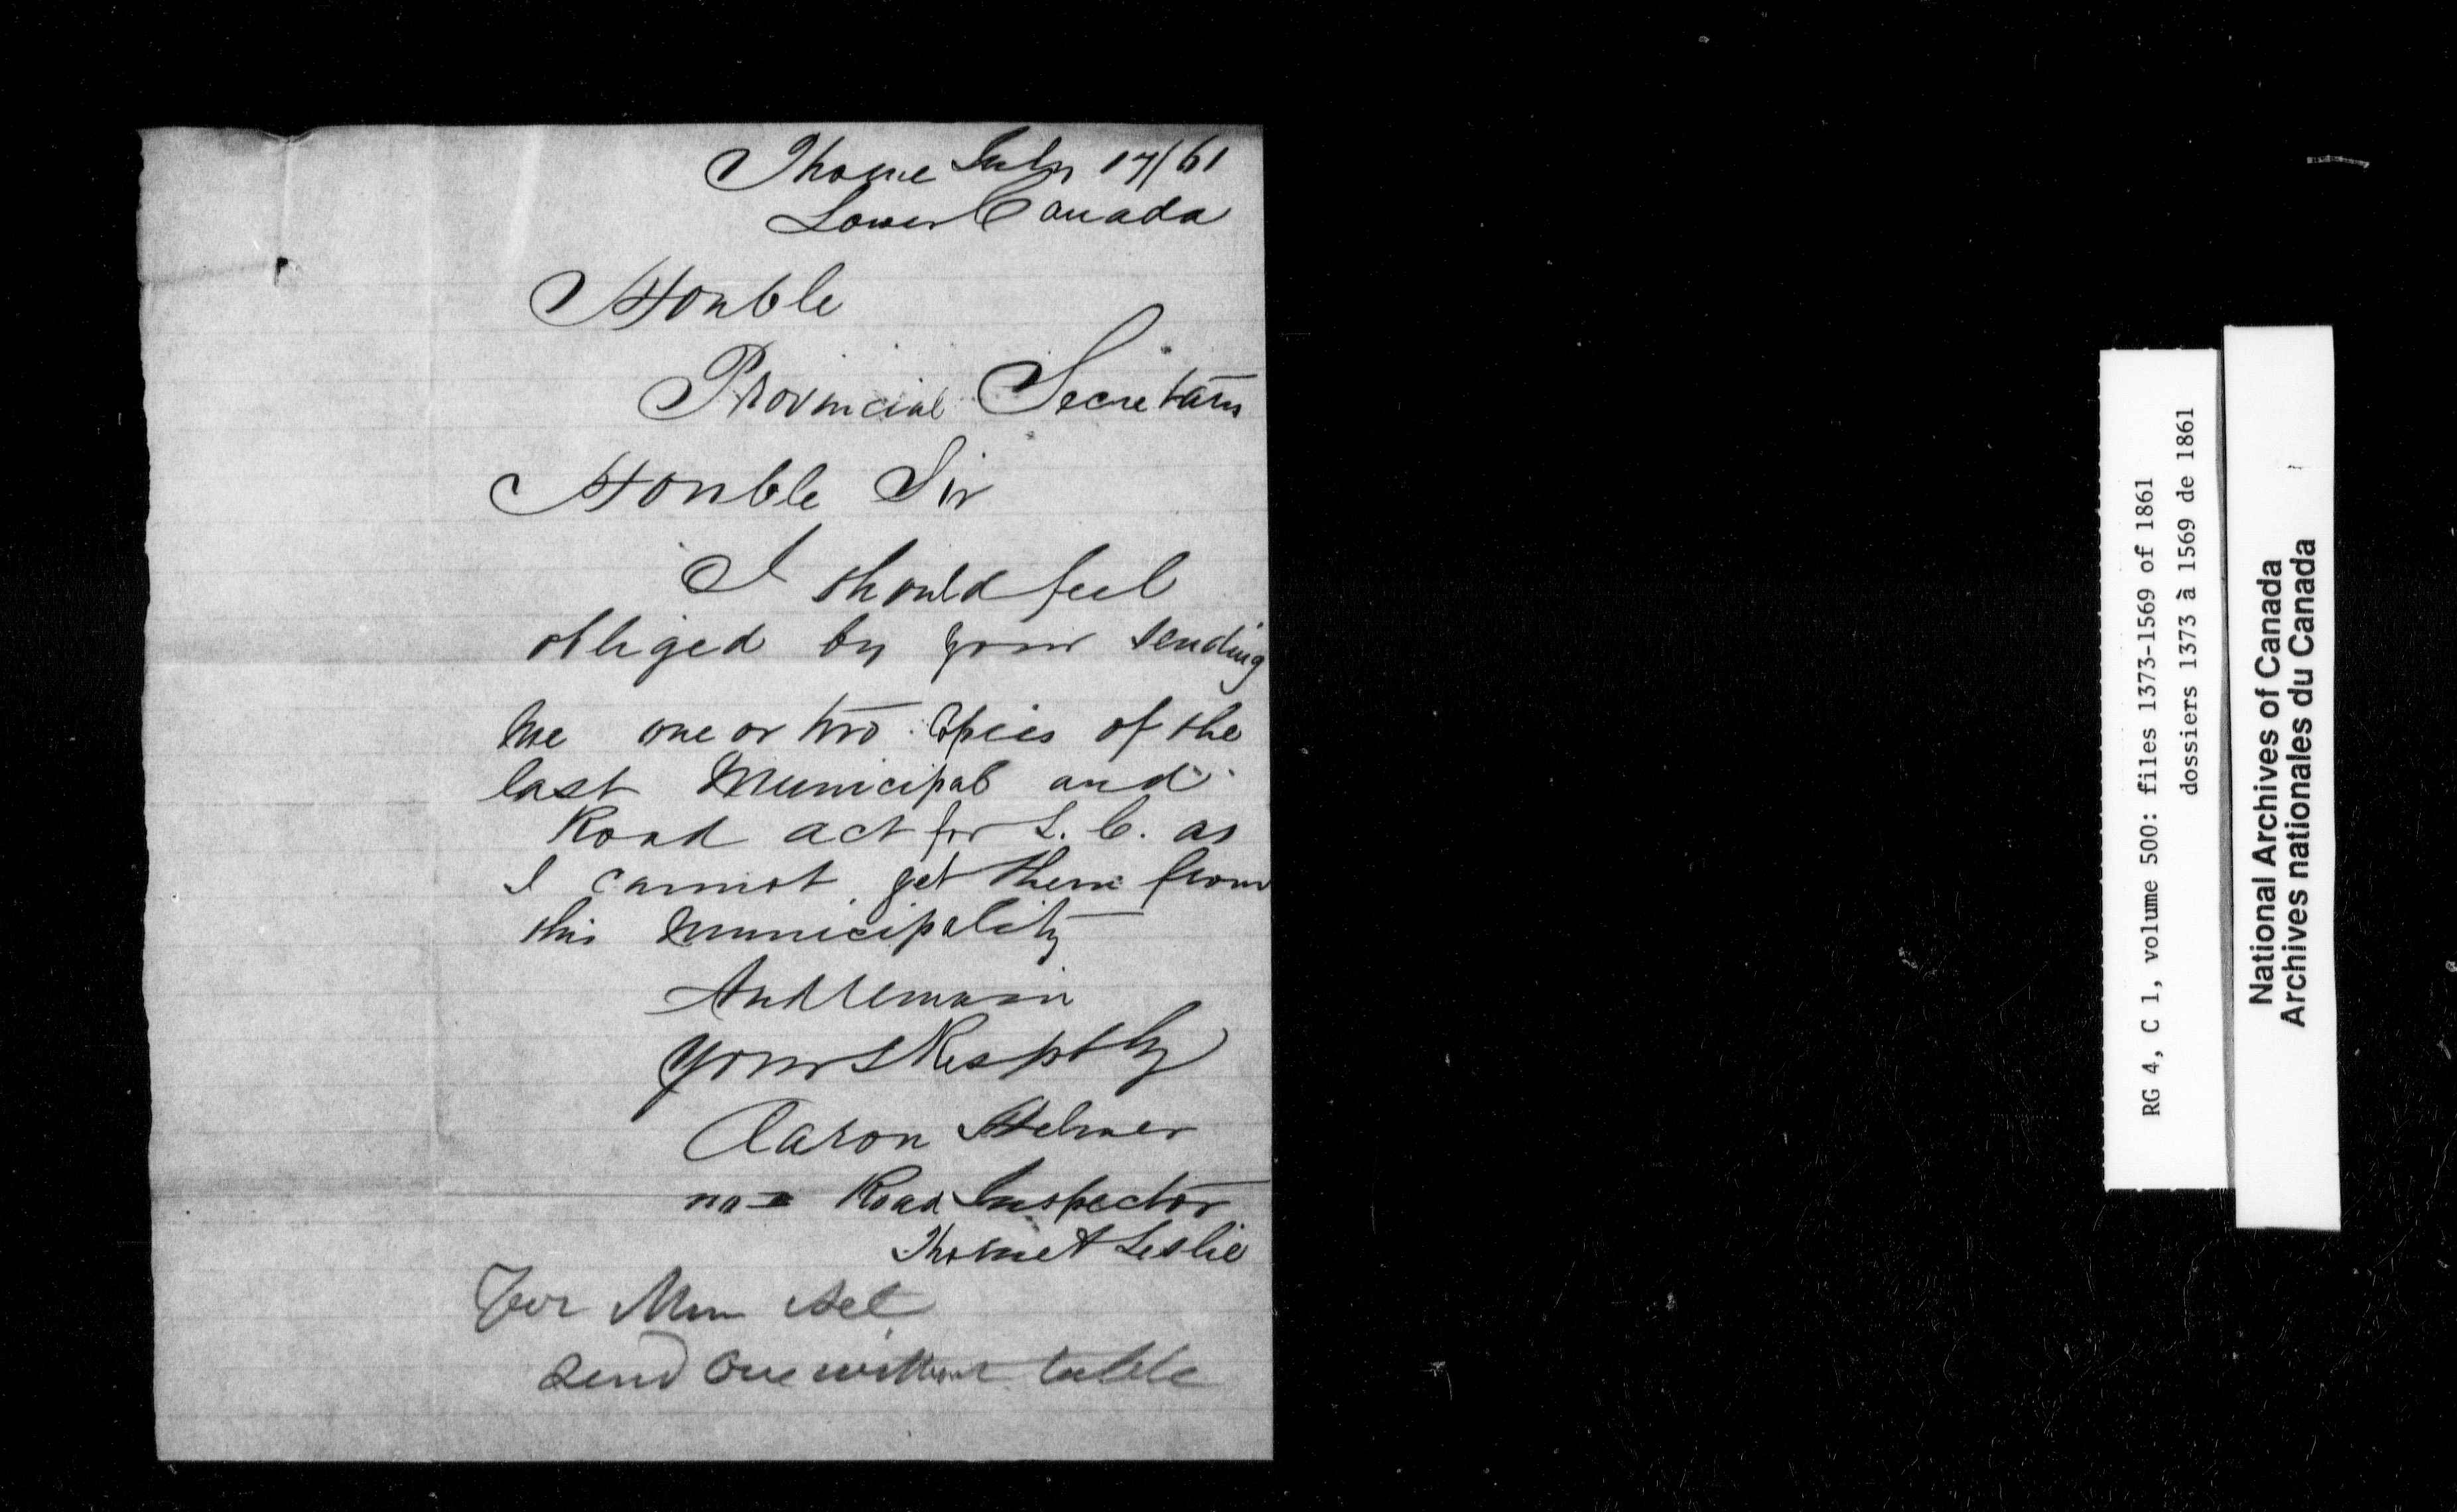 Thorne July 17/61
Lower Canada
Honble
Provincial Secretary
Honble Sir
I should feel
obliged by your sending
me one or two Copies of the
last Municipal and
Road act for L. C. as
I cannot get them from
this Municipality
And remain
Yours Resptly
Aaron Helmer
Road Inspector
Thorne & Leslie
For Mun Act
send one without table
RG 4, C 1, volume 500: files 1373-1569 of 1861
dossiers 1373 à 1569 de 1861
National Archives of Canada
Archives nationales du Canada